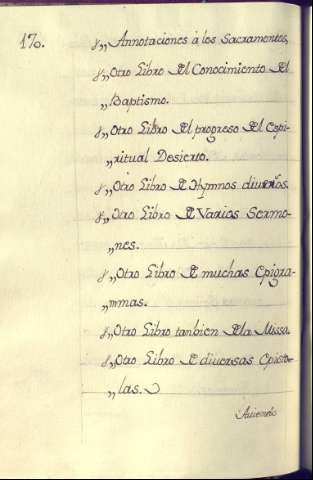 170.
y,, Annotaciones à los Sacramentos,
y,, Otro Libro del Conocimiento del
,, Baptismo.
y,, Otro Libro del progreso del Espi-
,, ritual Desierto.
y,, Otro Libro de Hymnos diuersos.
y,, Otro Libro de Varios Sermo-
,, nes.
y,, Otro Libro de muchas Epigra-
,, mmas.
y,, Otro Libro tambien de la Missa.
y,, Otro Libro de diuersas Episto-
,, las.